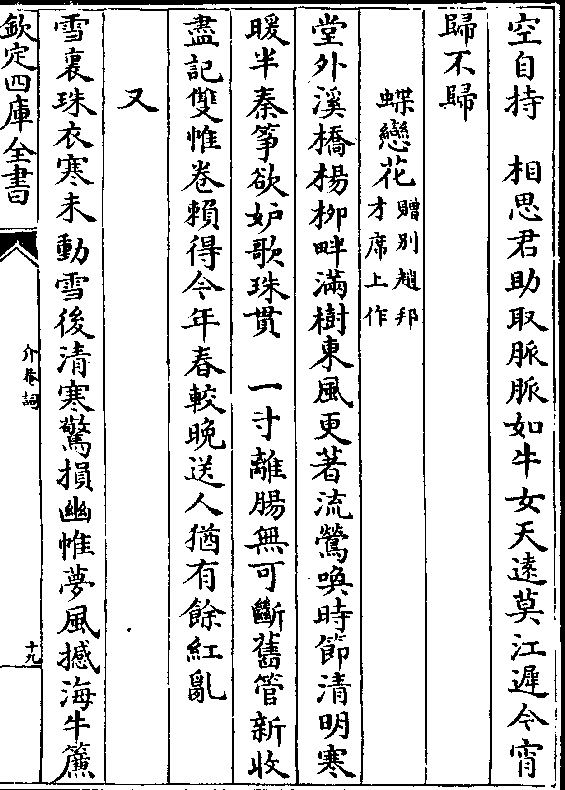 空自持　相思君助取脈脈如牛女天遠莫江遲今宵
歸不歸
蝶戀花贈別趙邦才席上作
堂外溪橋楊柳畔滿樹東風更著流鶯喚時節清明寒
暖半秦箏欲妒歌珠貫　一寸離腸無可斷舊管新收
盡記雙帷卷賴得今年春較晚送人猶有餘紅亂
又
雪裏珠衣寒未動雪後清寒驚損幽帷夢風撼海牛簾
欽定四庫全書
介菴詞
十九